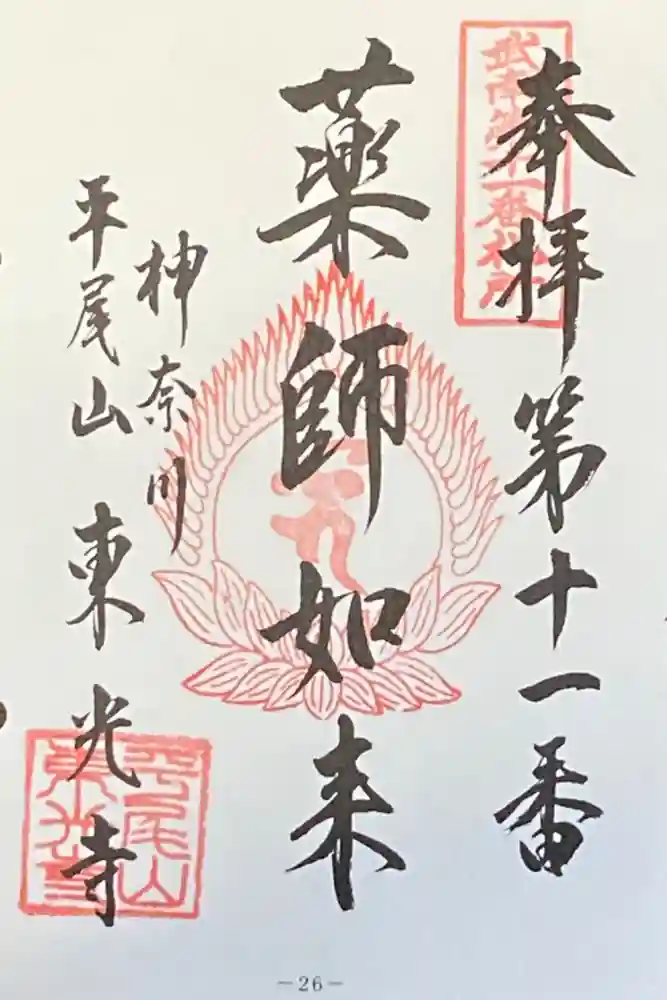 奉拝第十一番
武南第十一番札所
薬師如来
神奈川
平尾山東光寺
平尾山
東光寺
－26－